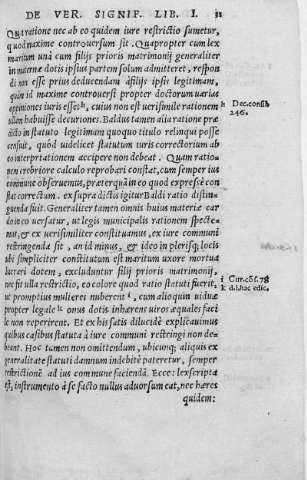 DE VER. SIGNIF. LIB. I. 31
Qua ratione nec ab eo quidem iure restrictio sumetur,
quod maxime controuersum sit. Quapropter cum lex
marium unà cum filijs prioris matrimonij generaliter
in maternæ dotis ipsius partem solum admitteret, respon
di non esse prius deducendam assis ipsis legitimam,
quin id maxime controuersi propter doctorum uarias
opiniones iuris esset h, cuius non est uerisimile rationem
ullam habuisse decuriones. Baldus tamen alia ratione præ
dicto in statuto legitimam quoquo titulo relinqui posse
censuit, quòd uidelicet statutum iuris correctorium ab
eo interpretationem accipere non debeat. Quam ratio-
nem crebriore calculo reprobari constat, cum semper ius
commune obseruemus, præterquàm in eo quod expressè con
stat correctum. ex supra dictis igitur Baldi ratio distin-
guenda fuit. Generaliter tamen omnis huius materiæ car
do in eo uersatur, ut legis municipalis rationem specte-
mus, & ex uerisimiliter constituamus, ex iure communi
restringenda sit, an id minus, & ideo in plerisq; locis
ubi simpliciter constitutum est maritum uxore mortua
lucrari dotem, excluduntur filij prioris matrimonij,
nec fit ulla restrictio, eo colore quod ratio statuti fuerit,
ut promptius mulieres nuberent i, cum alioquin uiduæ
propter legale k onus dotis inhærens uiros æquales faci
le non reperirent. Et ex his satis dilucidè explicauimus
quibus casibus statuta à iure communi restringi non de-
beant. Hoc tamen non omittendum, ubicunq; aliquis ex
generalitate statuti damnum indebitè pateretur, semper
restrictionem ad ius commune faciendam. Ecce: lex scripta
est, instrumento à se facto nullus aduorsum eat, nec hæres
quidem:
h Dec. consil.
246.
i Cur. cõs. 78
k d. l. hac edic.